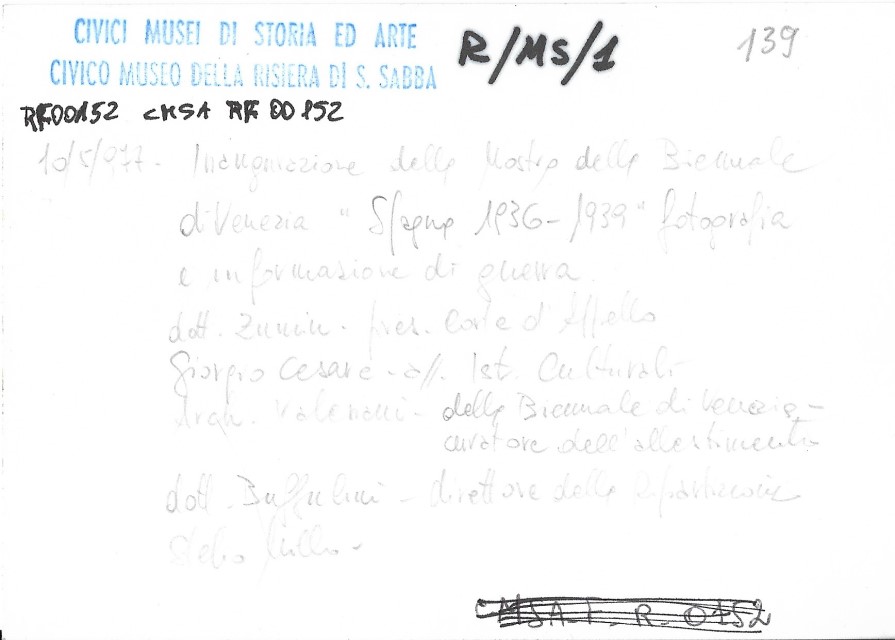 CIVICI MUSEI DI STORIA ED ARTE
CIVICO MUSEO DELLA RISIERA DI S. SABBA
R/MS/1
139
RF00152 CMSA RF 00152
10/5/977- Inaugurazione della Mostra della Biennale
di Venezia "Spagna 1936-1939" fotografia
e informazione di guerra
dott. Zumin - pres. Corte d'Appello
Giorgio Cesare - ass. Ist. Culturali
Arch. - della Biennale di Venezia -
curatore dell'allestimento
dott. Buffulini - direttore della Ripartizione
Stelio
CMSA F. R. 0152